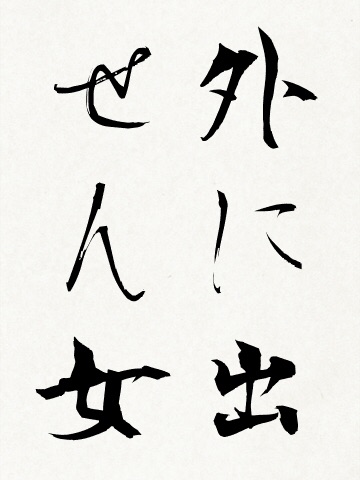 外に出
せん女